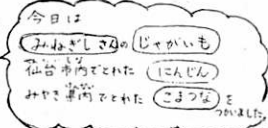 今日は
みねぎしさんの じゃがいも
仙台市内でとれた にんじん
みやぎ県内でとれた こまつな を
つかいました。